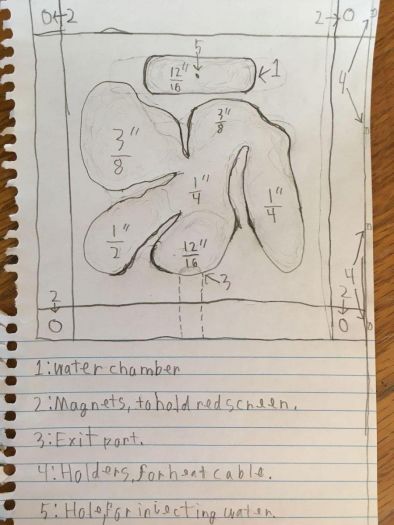 0←2
2→0
5
12"/16
1
4
3"/8
3"/8
1"/4
1"/4
1"/2
12"/16
3
4
2
0
2
0
1: water chamber
2: Magnets, to hold red screen.
3: Exit port.
4: Holders, for heat cable.
5: Hole for injecting water.